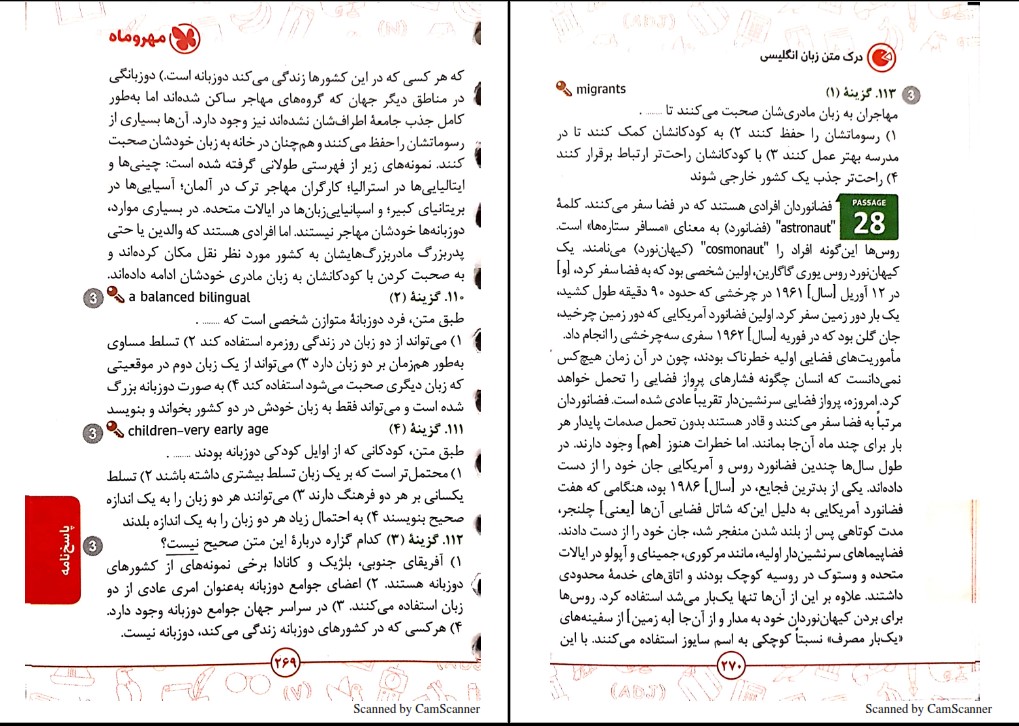 مهروماه
که هر کسی که در این کشورها زندگی می‌کند دوزبانه است.) دوزبانگی
در مناطق دیگر جهان که گروه‌های مهاجر ساکن شده‌اند اما به‌طور
کامل جذب جامعهٔ اطراف‌شان نشده‌اند نیز وجود دارد. آن‌ها بسیاری از
رسوماتشان را حفظ می‌کنند و هم‌چنان در خانه به زبان خودشان صحبت
کنند. نمونه‌های زیر از فهرستی طولانی گرفته شده است: چینی‌ها و
ایتالیایی‌ها در استرالیا؛ کارگران مهاجر ترک در آلمان؛ آسیایی‌ها در
بریتانیای کبیر؛ و اسپانیایی‌زبان‌ها در ایالات متحده. در بسیاری موارد،
دوزبانه‌ها خودشان مهاجر نیستند. اما افرادی هستند که والدین یا حتی
پدربزرگ مادربزرگ‌هایشان به کشور مورد نظر نقل مکان کرده‌اند و
به صحبت کردن با کودکانشان به زبان مادری خودشان ادامه داده‌اند.
۱۱۰. گزینهٔ (۲) a balanced bilingual 3
طبق متن، فرد دوزبانهٔ متوازن شخصی است که ........ .
۱) می‌تواند از دو زبان در زندگی روزمره استفاده کند ۲) تسلط مساوی
به‌طور هم‌زمان بر دو زبان دارد ۳) می‌تواند از یک زبان دوم در موقعیتی
که زبان دیگری صحبت می‌شود استفاده کند ۴) به صورت دوزبانه بزرگ
شده است و می‌تواند فقط به زبان خودش در دو کشور بخواند و بنویسد
۱۱۱. گزینهٔ (۴) children–very early age 3
طبق متن، کودکانی که از اوایل کودکی دوزبانه بودند ........ .
۱) محتمل‌تر است که بر یک زبان تسلط بیشتری داشته باشند ۲) تسلط
یکسانی بر هر دو فرهنگ دارند ۳) می‌توانند هر دو زبان را به یک اندازه
صحیح بنویسند ۴) به احتمال زیاد هر دو زبان را به یک اندازه بلدند
۱۱۲. گزینهٔ (۳) کدام گزاره دربارهٔ این متن صحیح نیست؟ 3
۱) آفریقای جنوبی، بلژیک و کانادا برخی نمونه‌های از کشورهای
دوزبانه هستند. ۲) اعضای جوامع دوزبانه به‌عنوان امری عادی از دو
زبان استفاده می‌کنند. ۳) در سراسر جهان جوامع دوزبانه وجود دارد.
۴) هرکسی که در کشورهای دوزبانه زندگی می‌کند، دوزبانه نیست.
پاسخ‌نامه
۲۶۹
Scanned by CamScanner
درک متن زبان انگلیسی
۱۱۳. گزینهٔ (۱) migrants 3
مهاجران به زبان مادری‌شان صحبت می‌کنند تا ........ .
۱) رسوماتشان را حفظ کنند ۲) به کودکانشان کمک کنند تا در
مدرسه بهتر عمل کنند ۳) با کودکانشان راحت‌تر ارتباط برقرار کنند
۴) راحت‌تر جذب یک کشور خارجی شوند
PASSAGE
28
فضانوردان افرادی هستند که در فضا سفر می‌کنند. کلمهٔ
"astronaut" (فضانورد) به معنای «مسافر ستاره‌ها» است.
روس‌ها این‌گونه افراد را "cosmonaut" (کیهان‌نورد) می‌نامند. یک
کیهان‌نورد روس یوری گاگارین، اولین شخصی بود که به فضا سفر کرد، [و]
در ۱۲ آوریل [سال] ۱۹۶۱ در چرخشی که حدود ۹۰ دقیقه طول کشید،
یک بار دور زمین سفر کرد. اولین فضانورد آمریکایی که دور زمین چرخید،
جان گلن بود که در فوریه [سال] ۱۹۶۲ سفری سه‌چرخشی را انجام داد.
مأموریت‌های فضایی اولیه خطرناک بودند، چون در آن زمان هیچ‌کس
نمی‌دانست که انسان چگونه فشارهای پرواز فضایی را تحمل خواهد
کرد. امروزه، پرواز فضایی سرنشین‌دار تقریباً عادی شده است. فضانوردان
مرتباً به فضا سفر می‌کنند و قادر هستند بدون تحمل صدمات پایدار هر
بار برای چند ماه آن‌جا بمانند. اما خطرات هنوز [هم] وجود دارند. در
طول سال‌ها چندین فضانورد روس و آمریکایی جان خود را از دست
داده‌اند. یکی از بدترین فجایع، در [سال] ۱۹۸۶ بود، هنگامی که هفت
فضانورد آمریکایی به دلیل این‌که شاتل فضایی آن‌ها [یعنی] چلنجر،
مدت کوتاهی پس از بلند شدن منفجر شد، جان خود را از دست دادند.
فضاپیماهای سرنشین‌دار اولیه، مانند مرکوری، جمینای و آپولو در ایالات
متحده و وستوک در روسیه کوچک بودند و اتاق‌های خدمهٔ محدودی
داشتند. علاوه بر این از آن‌ها تنها یک‌بار می‌شد استفاده کرد. روس‌ها
برای بردن کیهان‌نوردان خود به مدار و از آن‌جا [به زمین] از سفینه‌های
«یک‌بار مصرف» نسبتاً کوچکی به اسم سایوز استفاده می‌کنند. با این
۲۷۰
Scanned by CamScanner